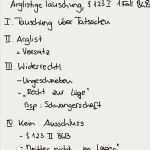 Arglistige Täuschung, § 123 I 1. Fall BGB
I. Täuschung über Tatsachen
II. Arglist
= Vorsatz
III. Widerrechtl.
- Ungeschrieben
- „Recht zur Lüge“
Bsp: Schwangerschaft
IV. Kein Ausschluss
- § 123 II BGB
- „Dritter nicht im Lager“